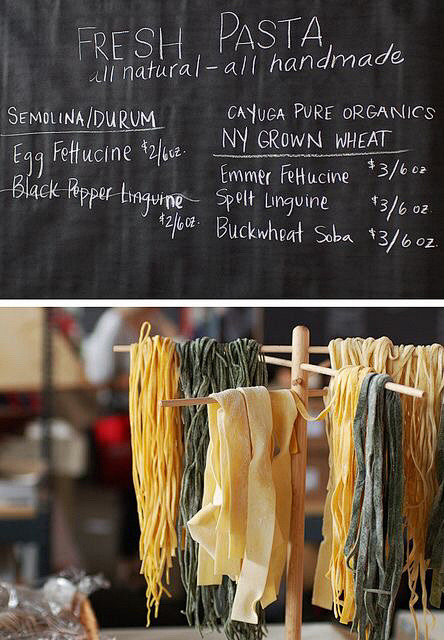 FRESH PASTA
all natural - all handmade
SEMOLINA/DURUM
Egg Fettucine $2/6oz.
Black Pepper Linguine
$2/6oz.
CAYUGA PURE ORGANICS
NY GROWN WHEAT
Emmer Fettucine $3/6oz
Spelt Linguine $3/6oz.
Buckwheat Soba $3/6oz.